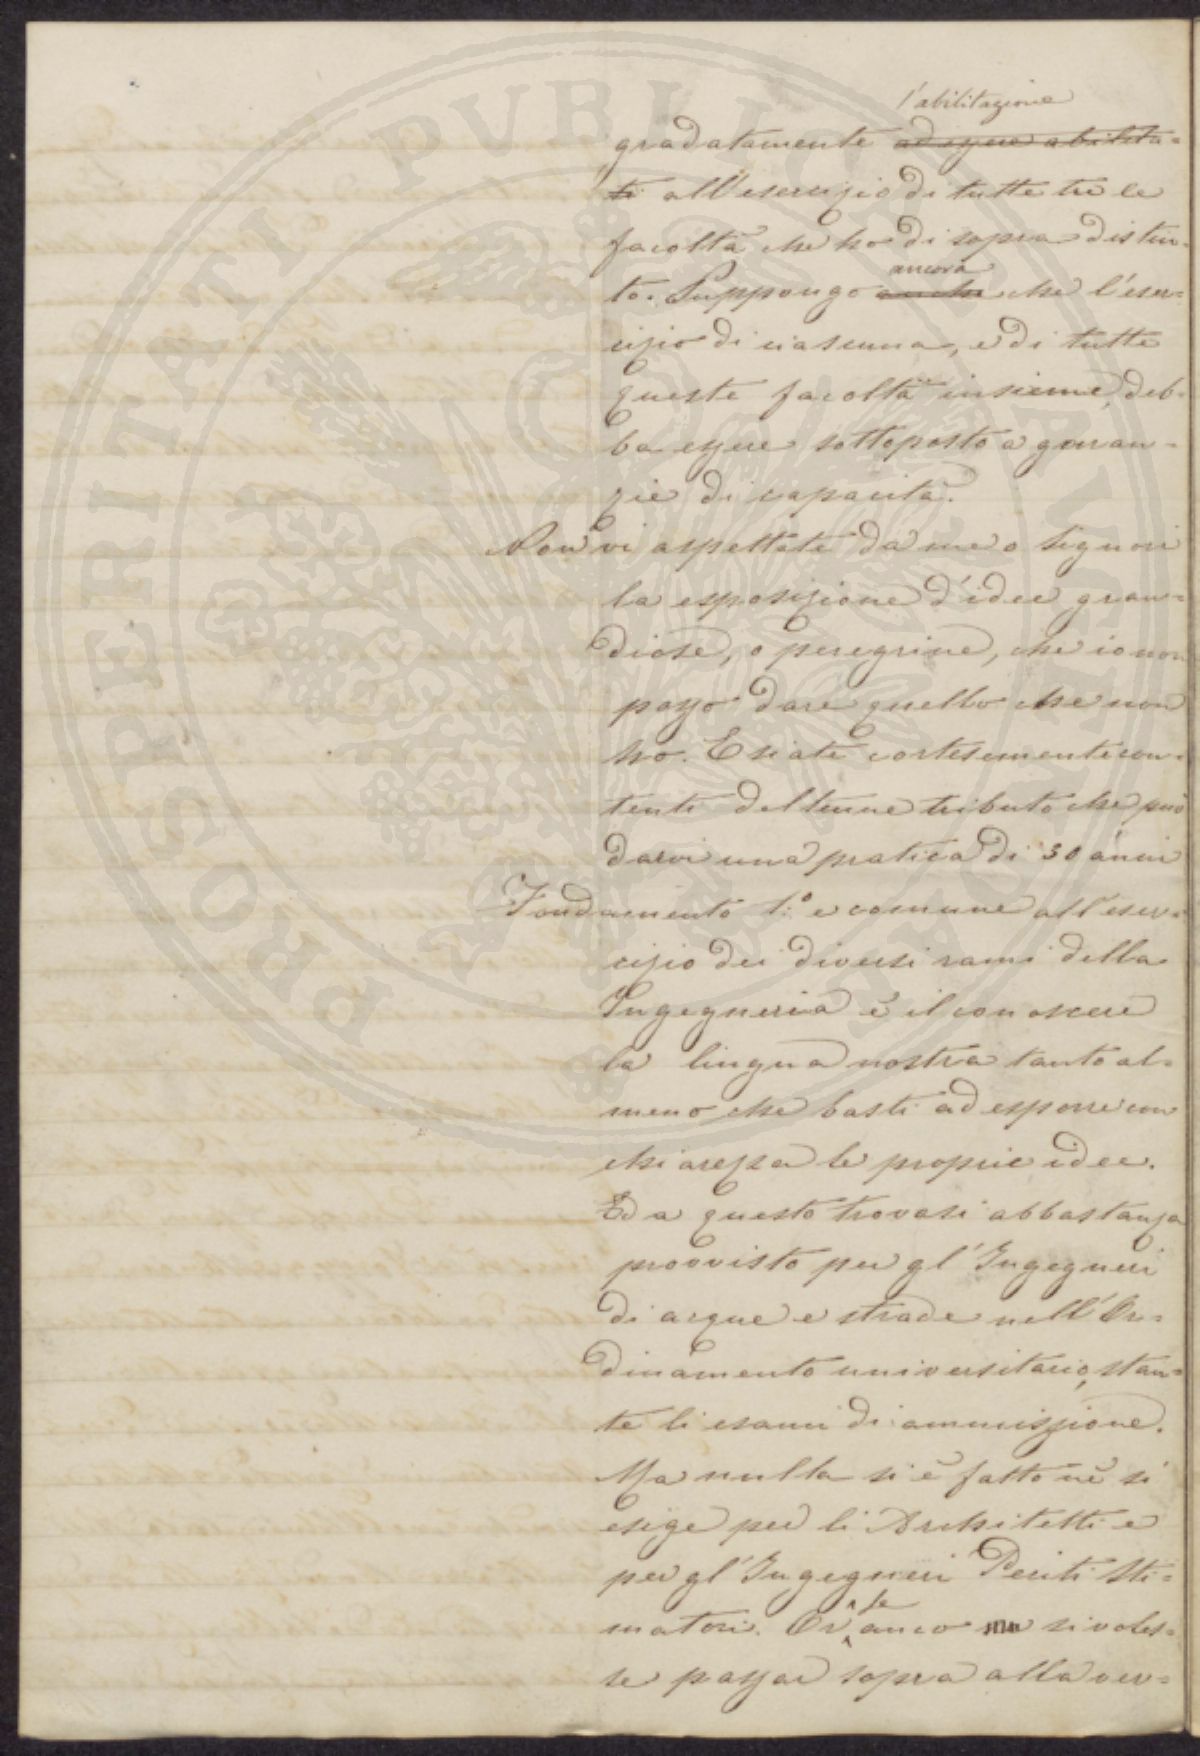 l'abilitazione
gradatamente ad essere abilita=
ti all'esercizio di tutte tre le
facoltà che ho di sopra distin=
ancora
to. Suppongo anche che l'eser=
cizio di ciascuna, e di tutte
queste facoltà insieme, deb=
ba essere sottoposto a garan=
zie di capacità.
Non vi aspettate da me o Signori
la esposizione d'idee gran=
diose, o peregrine, che io non
posso dare quello che non
ho. E siate cortesemente con=
tenti del tenue tributo che può
darvi una pratica di 30 anni
Fondamento 1.o e comune all'eser=
cizio dei diversi rami della
Ingegneria è il conoscere
la lingua nostra tanto al=
meno che basti ad esporre con
chiarezza le proprie idee.
Ed a questo trovasi abbastanza
provvisto per gl'Ingegneri
di acque e strade nell'Or=
dinamento universitario, stan=
te li esami di ammissione.
Ma nulla si è fatto nè si
esige per li Architetti e
per gl'Ingegneri Periti Sti=
se
matori. Or anco si voles=
se passar sopra alla ver=
PROSPERITATI PVBLICAE